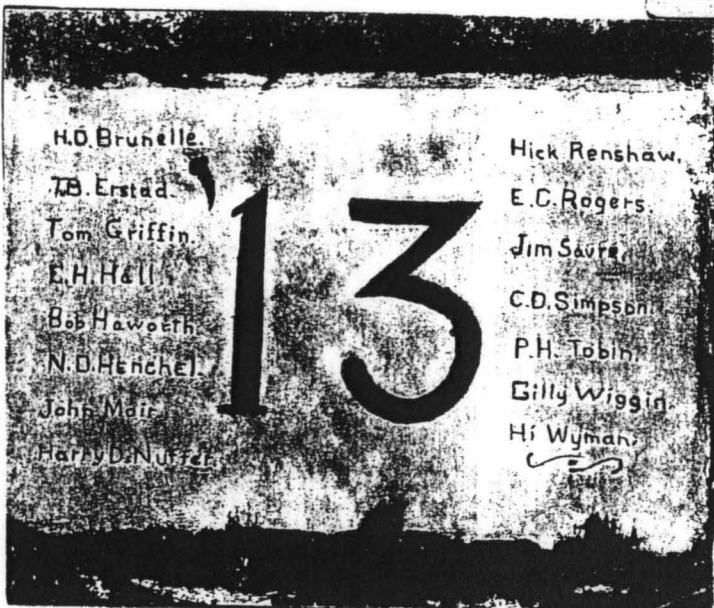 H.O. Brunelle.
T.B. Erstad.
Tom Griffin.
E.H. Hall.
Bob Haworth.
N.D. Henchel.
John Moir
Harry D. Nuffer.
'13
Hick Renshaw.
E.C. Rogers.
Jim
C.D. Simpson.
P.H. Tobin.
Gilly Wiggin.
Hi Wyman.